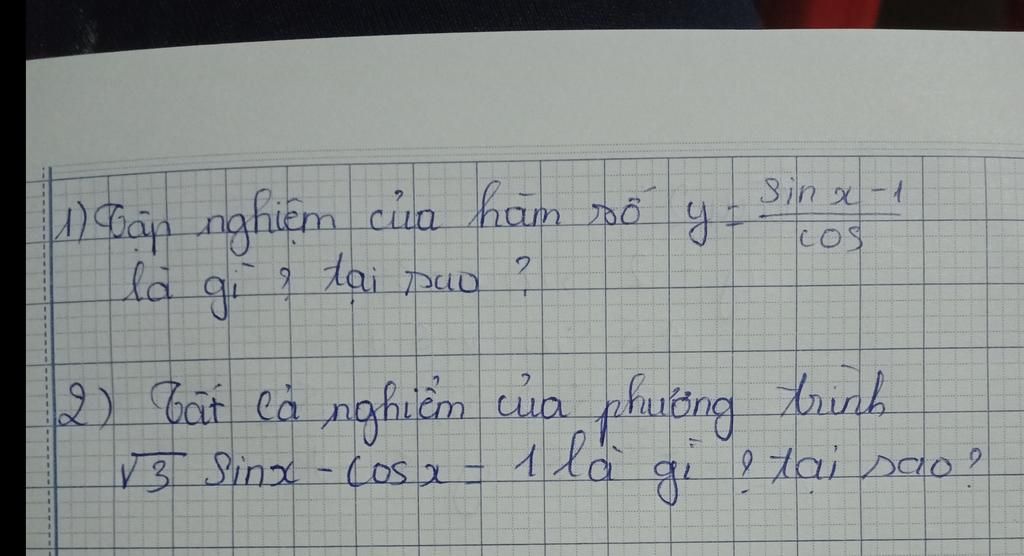 1) Tập nghiệm của hàm số y = \frac{sin x - 1}{cos}
là gì ? tại sao ?
2) Tất cả nghiểm của phương trình
√3 sinx - cosx = 1 là gì ? tại sao ?